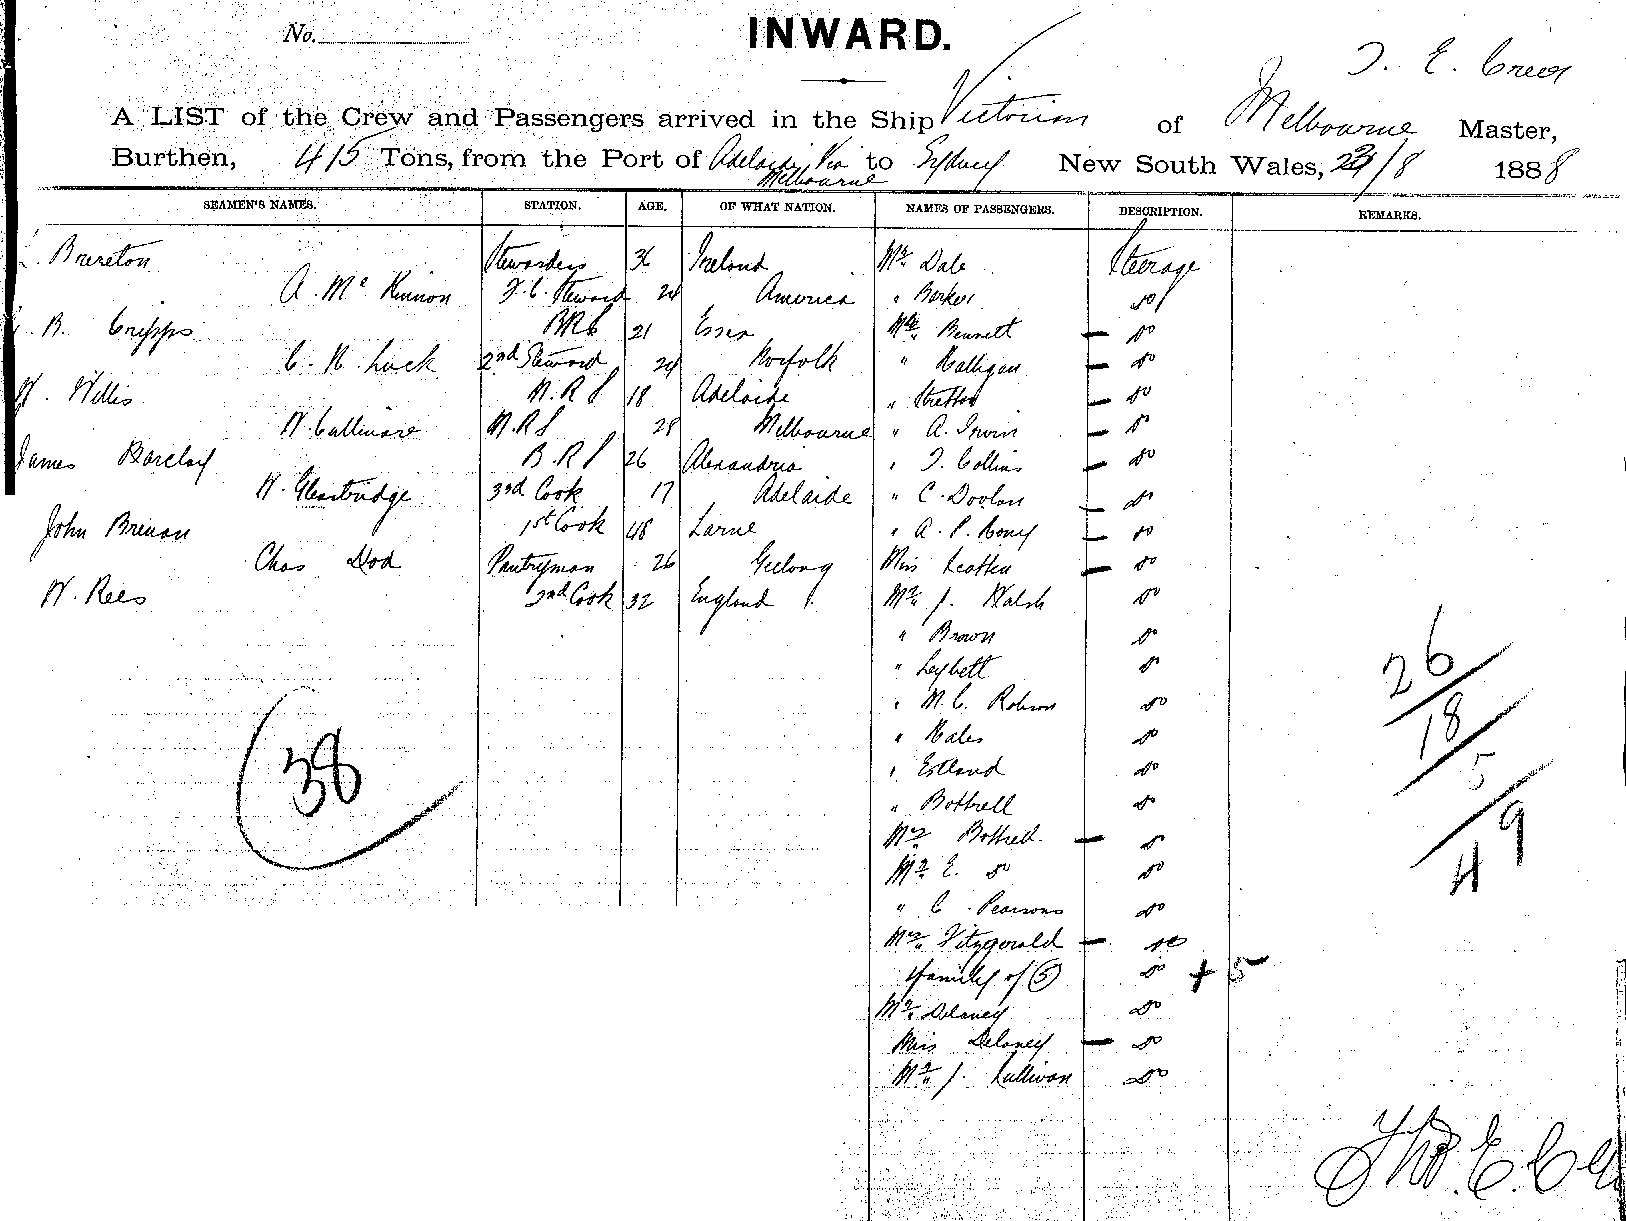 No.
INWARD.
T. E. Creer
A LIST of the Crew and Passengers arrived in the Ship Victorian of Melbourne Master,
Burthen, 415 Tons, from the Port of Adelaide Via Melbourne to Sydney New South Wales, /8 1888
SEAMEN'S NAMES. STATION. AGE. OF WHAT NATION. NAMES OF PASSENGERS. DESCRIPTION. REMARKS.
Brereton Stewardess 36 Ireland Mr. Dale Steerage
A. Mc Kinnon F. C. Steward 24 America " Barker do
B. Cripps BRS 21 Essex Mrs. Bennett — do
C. R. Lack 2nd Steward 24 Norfolk " Halligan — do
W. Willis M.R.S 18 Adelaide " Stretton — do
W. Cullimore M.R.S 28 Melbourne " A. Irwin — do
James Barclay B.R.S 26 Alexandria " T. Collins — do
W. 3rd Cook 17 Adelaide " C. Doolan — do
John Brenan 1st Cook 48 Larne " A. P. — do
Chas Dod Pantryman 26 Geelong Miss — do
W. Rees 2nd Cook 32 England Mr. J. Walsh do
" Brown do
" Leybett do
" M. C. Robson do
" Hales do
" Estland do
" Bottrell do
Mrs Bottrell — do
Mr. E. do do
" C. Pearsons do
Mrs. Fitzgerald — do
Family of 5 do + 5
Mr. Delaney do
Miss Delaney — do
Mr. J. Sullivan do
38
26
18
5
49
Thos. E. C